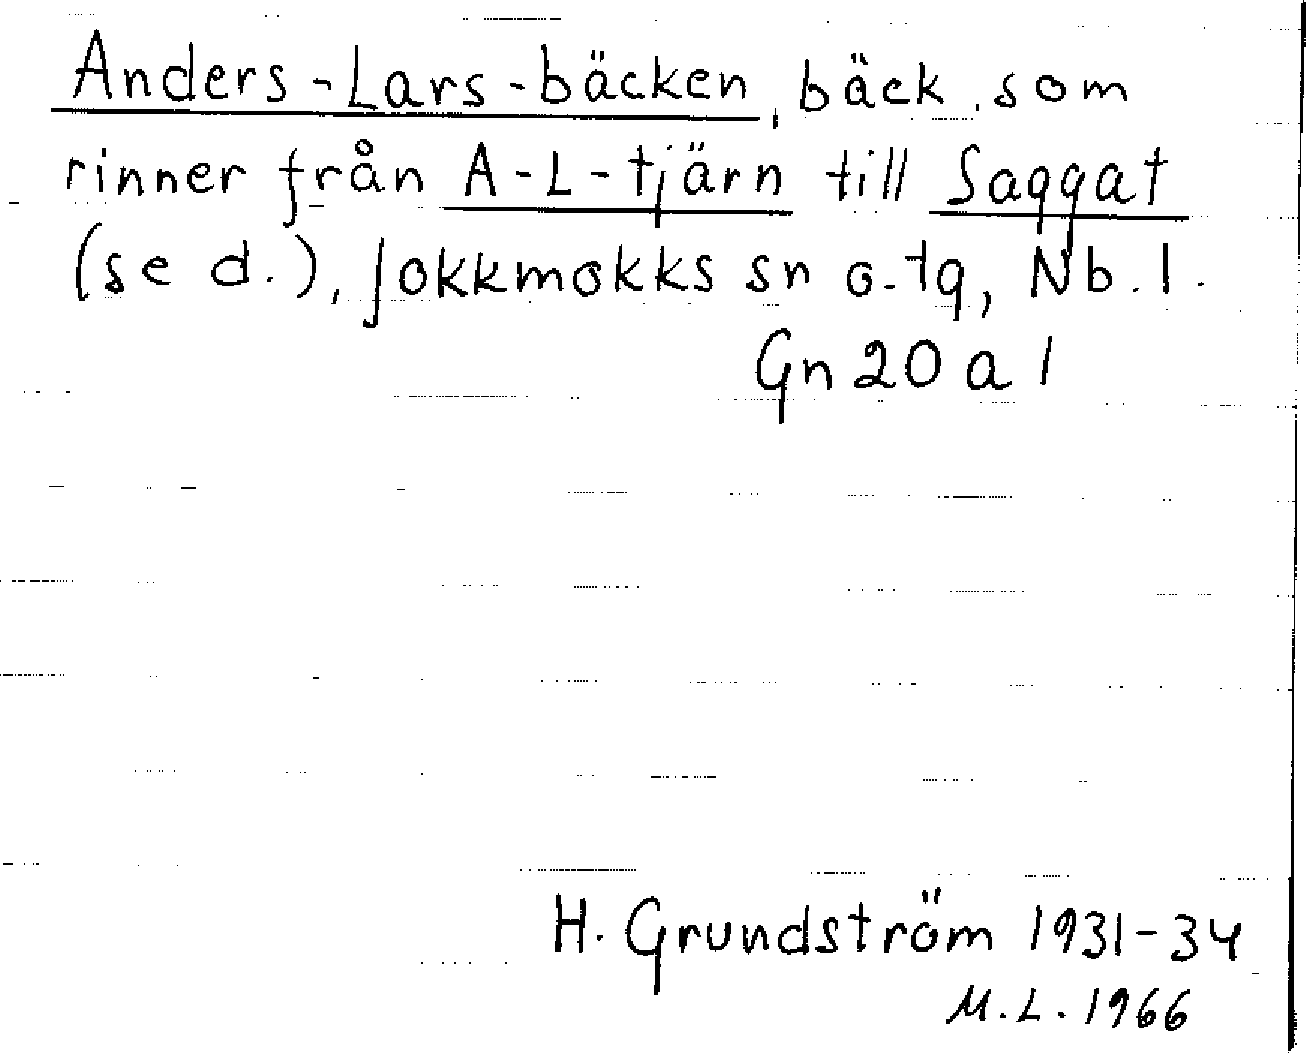 Anders-Lars-bäcken, bäck, som
rinner från A-L-tjärn till Saggat
(se d.), Jokkmokks sn o. tg, Nb. l.
Gn 20 a 1
H. Grundström 1931-34
M.L. 1966